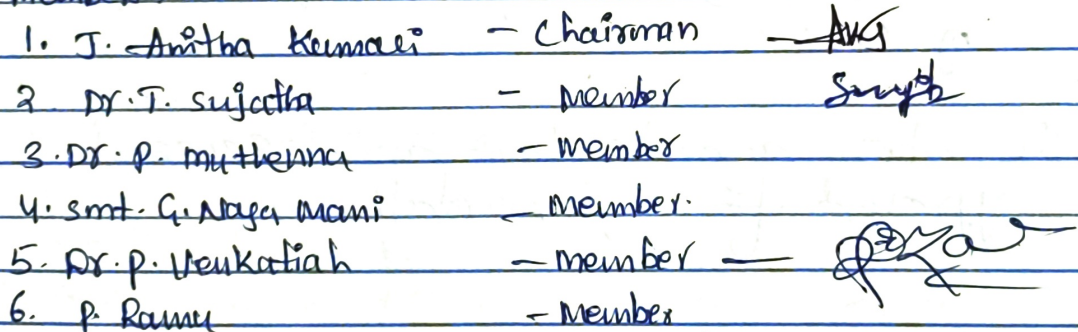 1. J. Anitha Kumari - Chairman
2 Dr. T. Sujatha - Member
3. Dr. P. Muthenna - member
4. Smt. G. Naga Mani - Member.
5. Dr. P. Venkatiah - member -
6. P. Ramu - Member